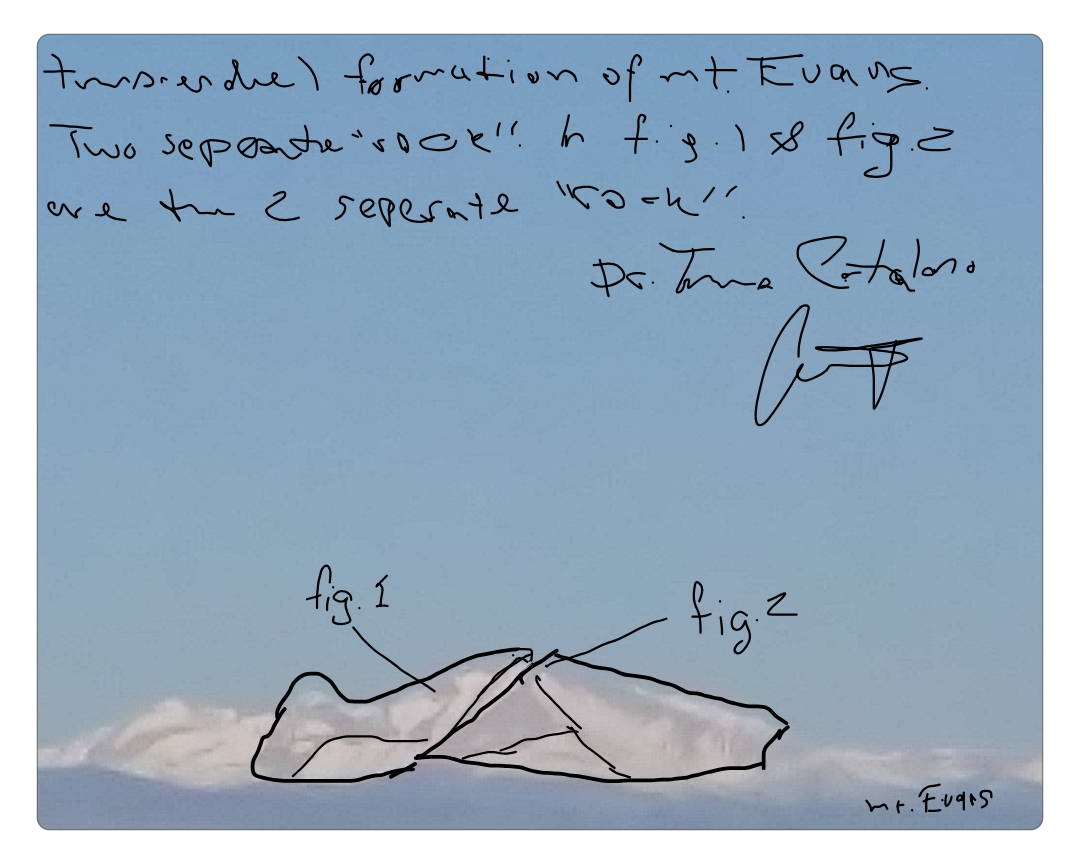 formation of mt. Evans.
Two seperate "rock". In fig. 1 & fig. 2
are the 2 seperate "rock".
Dr. Catalano
fig. 1
fig. 2
mt. Evans